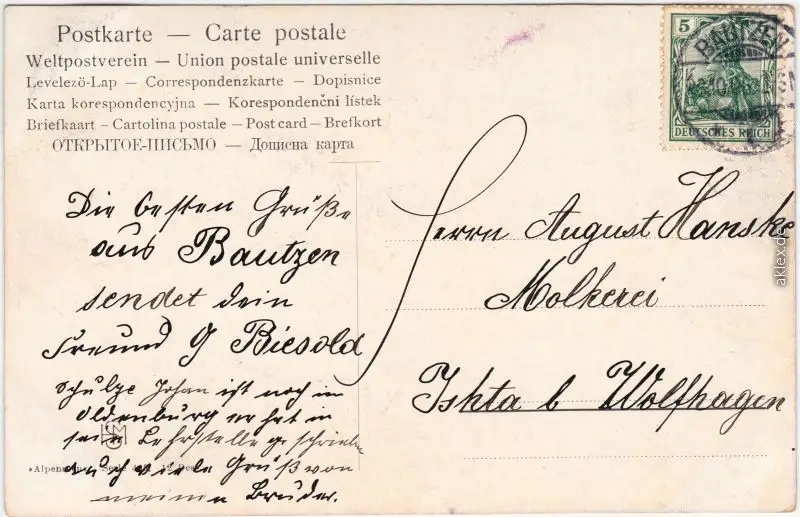 Postkarte — Carte postale
Weltpostverein — Union postale universelle
Levelező-Lap — Correspondenzkarte — Dopisnice
Karta korespondencyjna — Korespondenčni lístek
Briefkaart — Cartolina postale — Post card — Brefkort
ОТКРЫТОЕ-ПИСЬМО — Дописна карта
5
BAUTZEN
DEUTSCHES REICH
Die besten Grüße
aus Bautzen
sendet dein
Freund G Biesold
Schulze Johan ist noch in
Oldenburg er hat in
sein Lehrstelle geschrieben
auch viele Grüß von
meinen Bruder.
Herrn August Hanske
Molkerei
Ishta b Wolfhagen
aklex.de